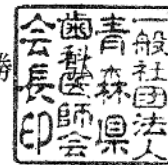 一般社団法人
青森県
歯科医師会
会長印
勝